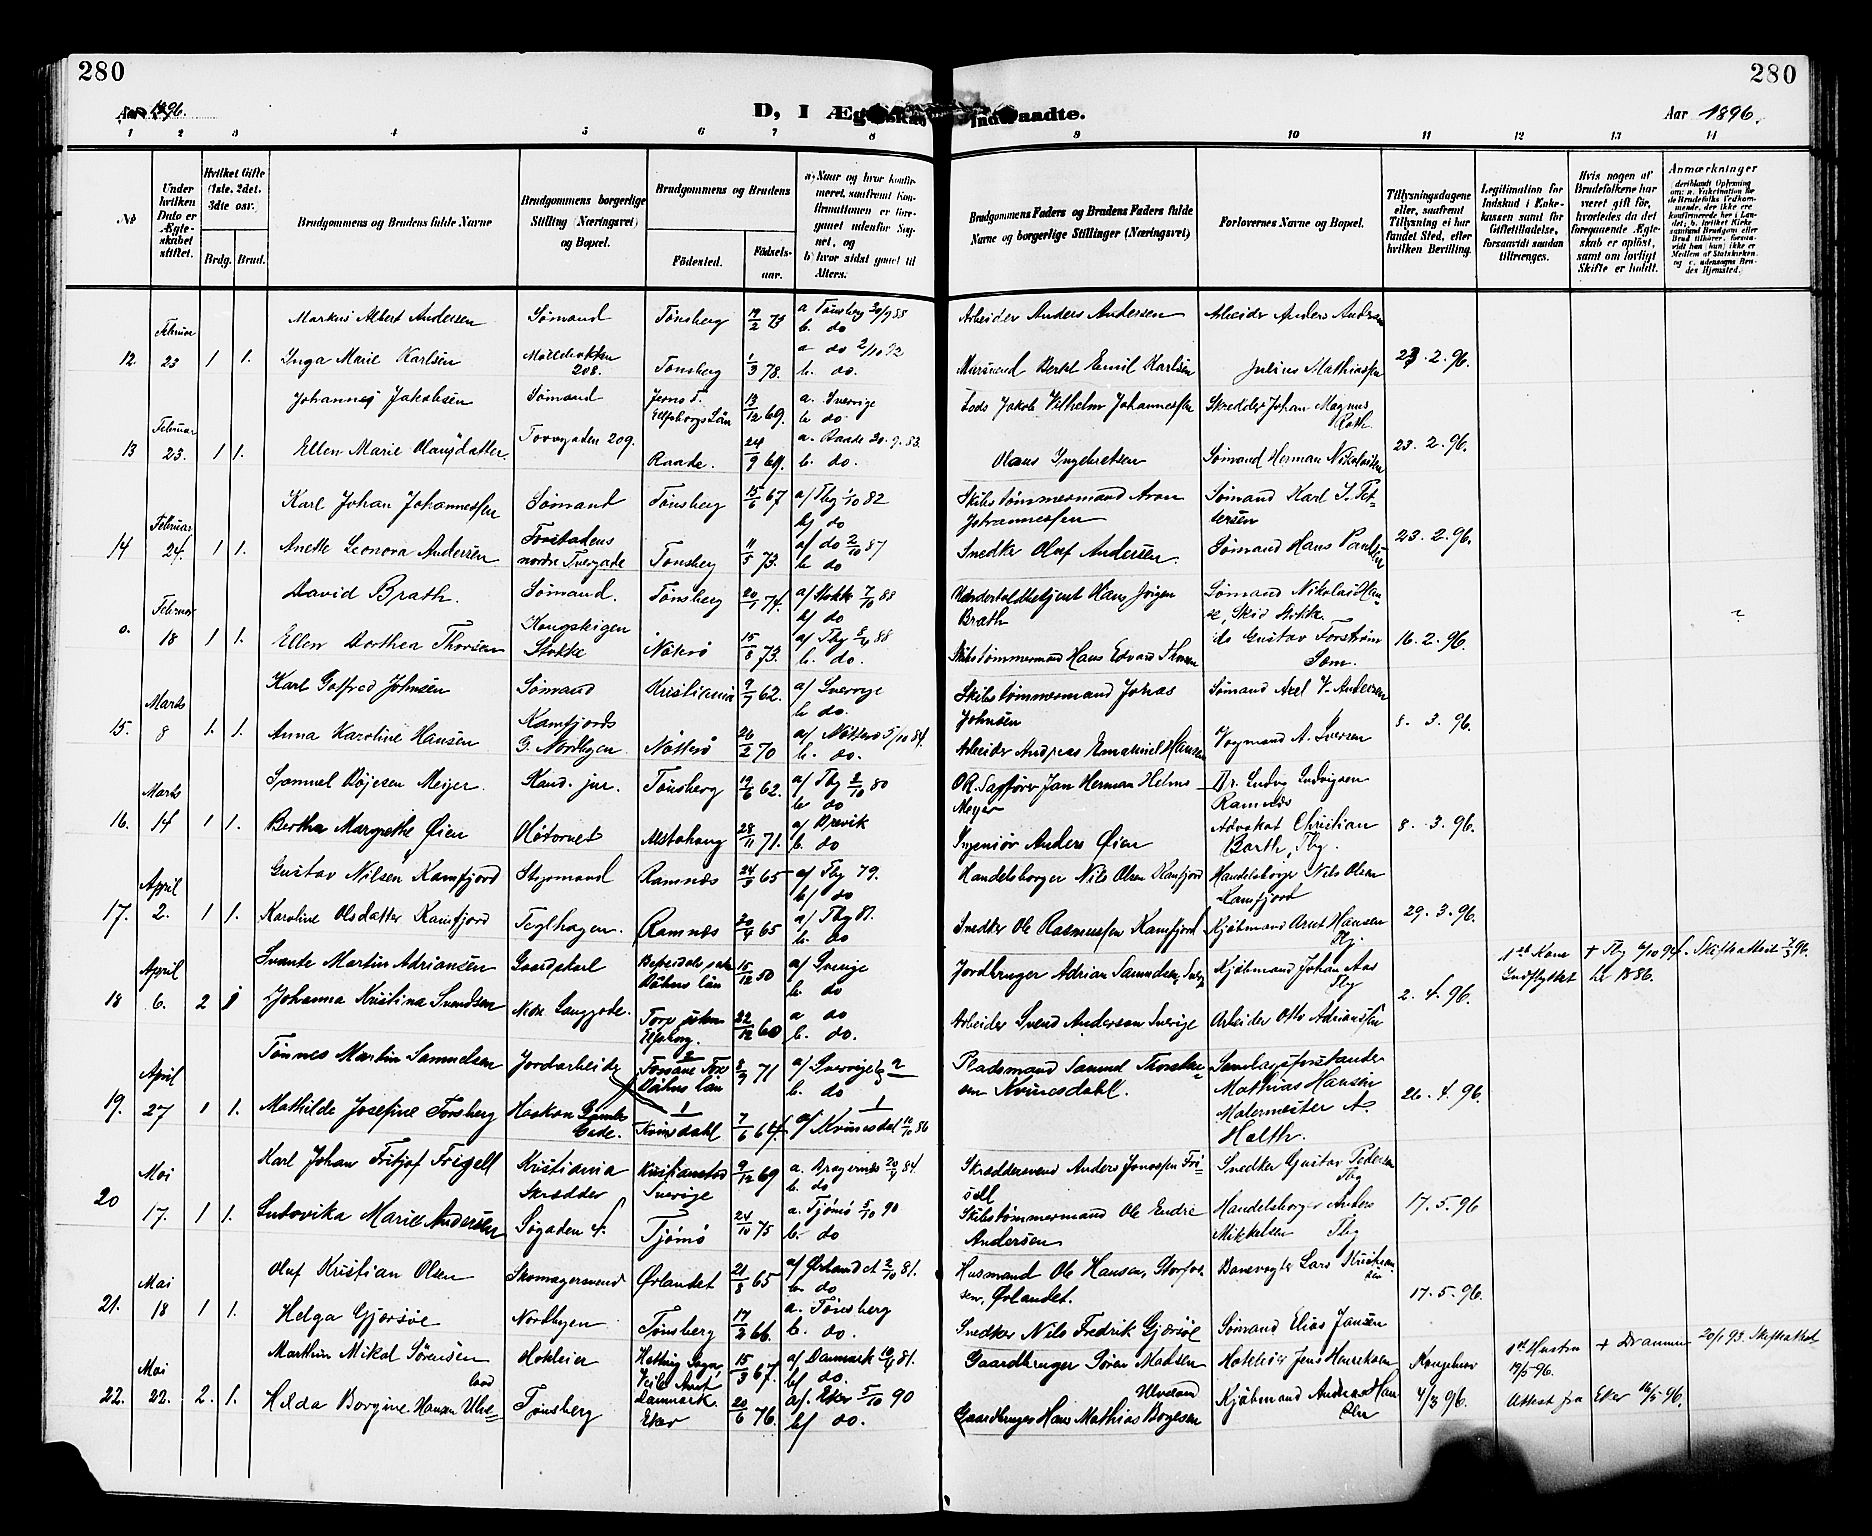 280
280
Aar 1896.
D, I Ægteskab Indtraadte.
Aar 1896.
1 2 3 4 5 6 7 8 9 10 11 12 13 14
No
Under hvilken Dato er Ægteskabet stiftet.
Hvilket Gifte (1ste, 2det, 3die osv.)
Brdg. Brud.
Brudgommens og Brudens fulde Navne
Brudgommens borgerlige Stilling (Næringsvei) og Bopæl.
Brudgommens og Brudens
Fødested.
Fødselsaar.
a) Naar og hvor konfirmeret, saafremt Konfirmationen er foregaaet udenfor Sognet, og
b) hvor sidst gaaet til Alters.
Brudgommens Faders og Brudens Faders fulde Navne og borgerlige Stillinger (Næringsvei)
Forlovernes Navne og Bopæl.
Tillysningsdagene eller, saafremt Tillysning ei har fundet Sted, efter hvilken Bevilling.
Legitimation for Indskud i Enkekassen samt for Giftetilladelse, forsaavidt saadan tiltrænges.
Hvis nogen af Brudefolkene har været gift før, hvorledes da det foregaaende Ægteskab er opløst, samt om lovligt Skifte er holdt.
Anmærkninger
Februar
Markus Albert Andersen Sømand Tønsberg 19/2 73 a Tønsberg 30/9 88 b. do Arbeider Anders Andersen Arbeider Anders Andersen
12. 23 1 1. Inga Marie Karlsen Møllebakken 208. Tønsberg 1/3 78. a do 2/10 92 b. do. Murmand Bertel Emil Karlsen Julius Mathiassen 23. 2. 96.
Februar
Johannes Jakobsen Sømand Elfsborgs Län 13/12 69. a. Sverige b. do. Lods Jakob Vilhelm Johannessen Skrædder Johan Magnus Rath.
13 23. 1 1. Ellen Marie Olausdatter. Torvgaden 209. Raade. 24/9 69. a. Raade 20. 9. 83. b. do. Olaus Ingebretsen Sømand Herman Nikolaisen 23. 2. 96.
Februar
Karl Johan Johannessen Sømand Tønsberg 15/6 67 a/ Tbg 1/10 82 b/ do Skibstømmermand Aron Johannessen Sømand Karl S. Pettersen
14 24. 1 1. Anette Leonora Andersen Forstadens nordre Tvergade Tønsberg 11/5 73. a/ do 2/10 87 b do Snedker Oluf Andersen. Sømand Hans Paulsen 23. 2. 96.
Februar
David Brath. Sømand. Tønsberg 20/1 74. a/ Stokke 7/10 88 b/ do Underfoldbetjent Hans Jørgen Brath Sømand Nikolai Hanse, Skid Stokke.
o. 18 1 1. Ellen Dorthea Thorsen Kongseigen Stokke Nøtterø 15/8 73. a/ Tbg 88 b. do. Skibstømmermand Hans Edvard Thorsen do Gustav Forstrøm Søm. 16. 2. 96.
Marts
Karl Gotfred Johnsen Sømand Kristiania 9/7 62. a/ Sverrige b do. Skibstømmermand Johas Johnsen Sømand Axel V. Andersen
15. 8 1. 1. Anna Karoline Hansen Kamfjords G. Nordbyen. Nøtterø 26/2 70 a/ Nøtterø 5/10 84. b. do. Arbeider Andreas Emanuel Hansen Vognmand A. Iversen 8. 3. 96.
Marts
Samuel Bøjesen Meijer Kand. jur. Tønsberg 19/6 62. a/ Tbg 2/10 80 b do O.R. Sagfører Jan Herman Helms Meyer Dr. Ludv. Ludvigsen Ramnæs
16. 14 1 1. Bertha Margrethe Øien Høtorvet Alstahoug 28/11 71. a/ Brevik b. do Ingeniør Anders Øien Advokat Christian Barth, Tbg. 8. 3. 96.
April
Gustav Nilsen Kamfjord Styrmand Ramnæs 24/3 65 a/ Tbg 79. b/ do Handelsborger Nils Olsen Kamfjord Handelsborger Nils Olsen Kamfjord
17. 2. 1 1. Karoline Olsdatter Kamfjord Teglhagen. Ramnæs 20/4 65 a/ Tbg 81. b. do Snedker Ole Rasmussen Kamfjord Kjøbmand Arnt Hansen Tbg. 29. 3. 96.
April
Svante Martin Adriansen Gaardskarl Båhus län 15/12 50 a/ Sverige b. do Jordbruger Adrian Samuelsen, Sverg. Kjøbmand Johan Aas Tbg 1ste Kone + Tbg 6/10 94. Skifteattest 2/3 96.
18 6. 2 1 Johanna Kristina Svendsen Ndre Langgade. Tore sokn Elfsborg. 22/12 60 a do b. do. Arbeider Svend Anderson Sverige Arbeider Otto Adriansen 2. 4. 96. Indflyttet hr 1886.
April
Tønnes Martin Samuelsen Jordarbeider Båhus län 8/9 71 a/ Sverrige 2 b. do Pladsmand Samuel Thorstensen Kvinesdahl. Samlagsforstander Mathias Hansen
19. 27 1 1. Mathilde Josefine Torsberg Haakon Gamles Gade. 1 Kvinsdahl 7/6 64. 1 a/ Kvinesdal 10/10 86 Malermester A. Holth. 26. 4. 96.
Mai
Karl Johan Fritjof Frigell Kristiania Skrædder Kristianstad Sverige 9/12 69 a. Bragernæs 20/4 84. b. do Skræddersvend Anders Jonassen Fridell Snedker Gustav Pedersen Tbg
20 17. 1 1. Ludovika Marie Andersen Søgaden 4. Tjømø 24/10 75 a. Tjømø 5/10 90 b. do Skibstømmermand Ole Endre Andersen Handelsborger Anders Mikkelsen Tbg 17. 5. 96
Mai
Oluf Kristian Olsen Skomagersvend Ørlandet 21/8 65 a/ Ørlandet 2/10 81. b. do Husmand Ole Hansen, Storfosen, Ørlandet. Banevogter Lars Kristiansen
21. 18 1 1. Helga Gjersøe Nordbyen. Tønsberg 17/2 66. a. Tønsberg b. do. Snedker Nils Fredrik Gjersøe Sømand Elias Jansen 17. 5. 96.
Mai
Marthin Mikal Sørensen Hoteleier Vejle Amt Danmark 15/3 67. a/ Danmark 10/4 81. b/ do. Gaardbruger Søren Madsen Hoteleier Jens Henriksen Kongebrev 1ste Hustru + Drammen 20/1 93. Skifteattest 19/5 96.
22. 22. 2. 1. Helda Borgine Hansen Ulveland Tønsberg Eker 20/6 76. a/. Eker 5/10 90 b/ do. Gaardbruger Hans Mathias Borgesen Ulveland Kjøbmand Andreas Hansen 4/3 96. Attest fra Eker 16/5 96.